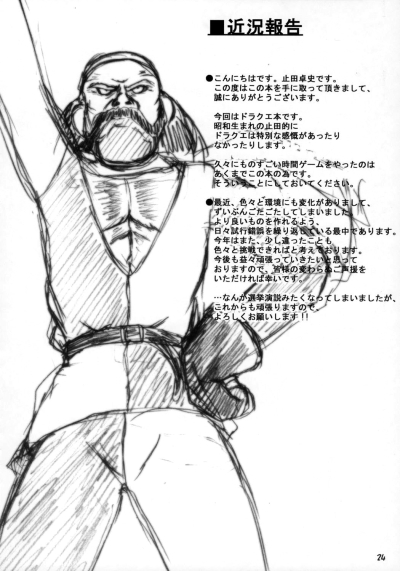 ■近況報告
●こんにちはです。止田卓史です。
この度はこの本を手に取って頂きまして、
誠にありがとうございます。
今回はドラクエ本です。
昭和生まれの止田的に
ドラクエは特別な感慨があったり
なかったりします。
久々にものすごい時間ゲームをやったのは
あくまでこの本の為です。
そういうことにしておいてください。
●最近、色々と環境にも変化がありまして、
ずいぶんごたごたしてしまいました。
より良いものを作れるよう、
日々試行錯誤を繰り返している最中であります。
今年はまた、少し違ったことも
色々と挑戦できればと考えております。
今後も益々頑張っていきたいと思って
おりますので、皆様の変わらぬご声援を
いただければ幸いです。
…なんか選挙演説みたくなってしまいましたが、
これからも頑張りますので、
よろしくお願いします!!
24